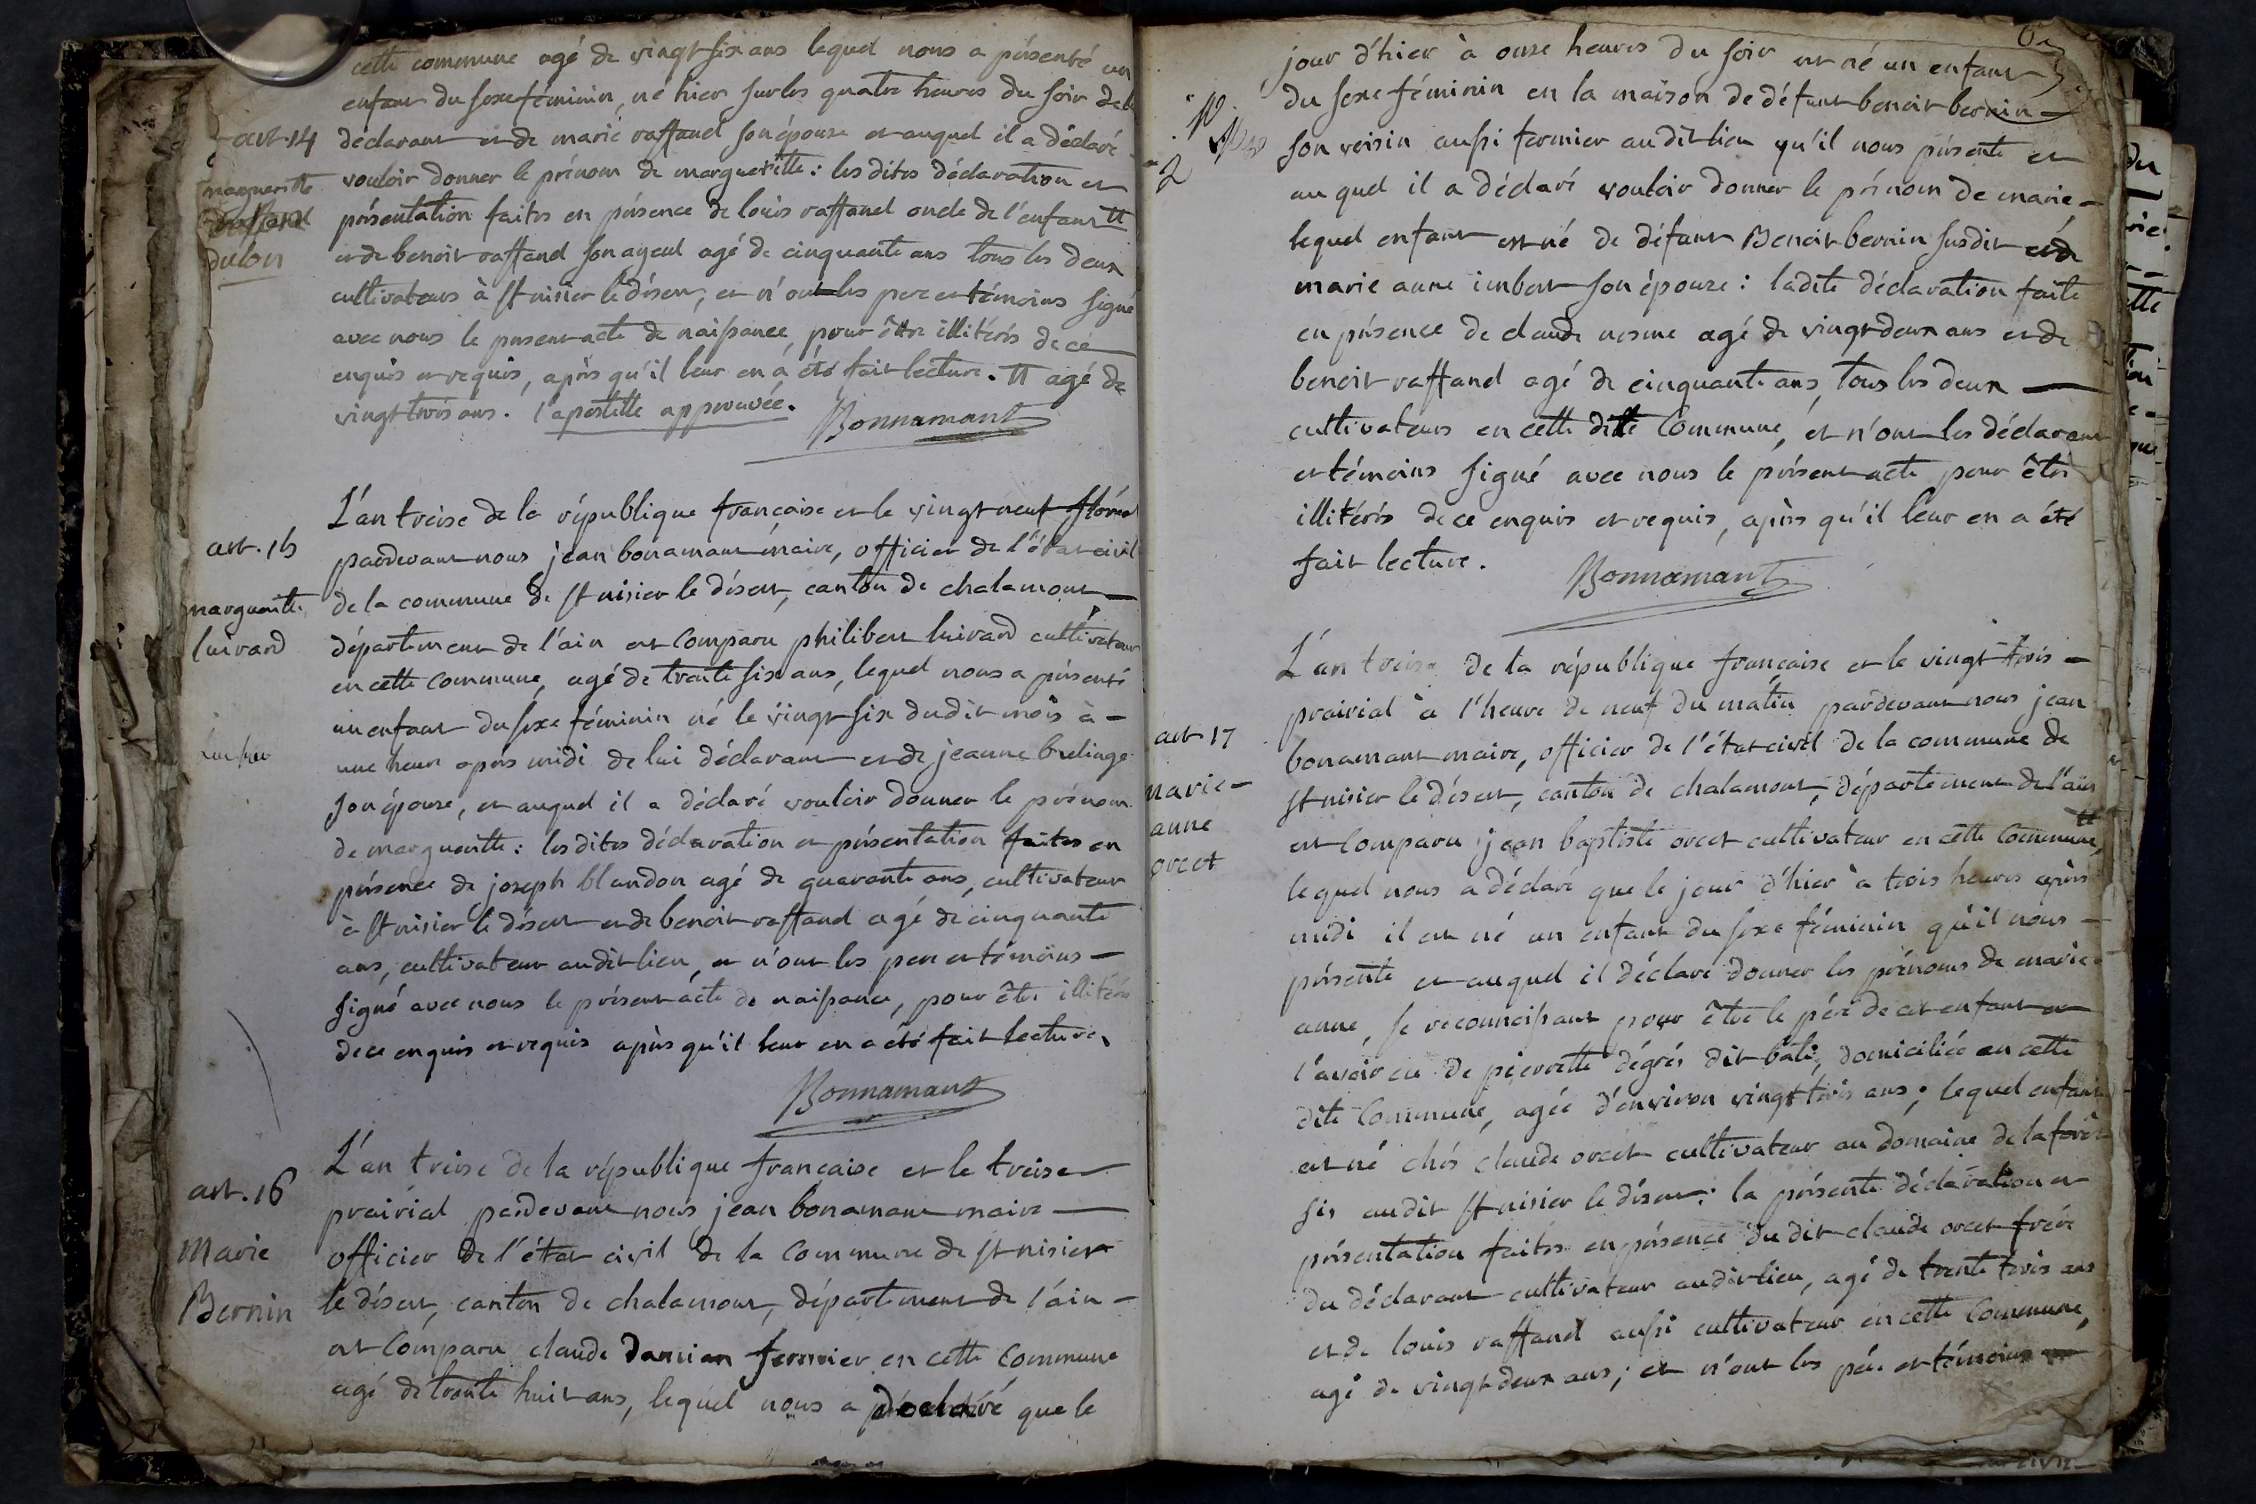 cette commune agé de vingt six ans lequel nous a présenté un
enfant du sexe féminin, né hier sur les quatre heures du soir de lui
art. 14
déclarant et de marie raffand son épouse et auquel il a déclaré
margueritte
vouloir donner le prénom de margueritte : les dites déclaration et
présentation faites en présence de louis raffand oncle de l'enfant tt
dubn
et de benoit raffand son ayeul agé de cinquante ans tous les deux
cultivateurs à st nisier le désert, et n'ont les pere et témoins signé
avec nous le présent acte de naissance, pour être illitérés de ce
enquis et requis, après qu'il leur en a été fait lecture. tt agé de
vingt trois ans. l'apostille approuvée.
Bonnamant
L'an treise de la république française et le vingt neuf floréal
art. 15
pardevant nous jean bonamant maire, officier de l'état civil
marguerite
de la commune de st nisier le désert, canton de chalamont
luivard
département de l'ain est comparu philibert luivard cultivateur
en cette commune, agé de trente six ans, lequel nous a présenté
un enfant du sexe féminin né le vingt six dudit mois à
une heure après midi de lui déclarant et de jeanne brelinge
son épouse, et auquel il a déclaré vouloir donner le prénom
de marguerite : les dites déclaration et présentation faites en
présence de joseph blandon agé de quarante ans, cultivateur
à st nisier le désert et de benoit raffand agé de cinquante
ans, cultivateur audit lieu, et n'ont les pere et témoins
signé avec nous le présent acte de naissance, pour être illitérés
de ce enquis et requis après qu'il leur en a été fait lecture.
Bonnamant
L'an treise de la république française et le treise
art. 16
prairial pardevant nous jean bonamant maire
Marie
officier de l'état civil de la commune de st nisier
Bernin
le désert, canton de chalamont, département de l'ain
est comparu claude damian fermier en cette commune
agé de trente huit ans, lequel nous a déclaré que le
jour d'hier à onze heures du soir est né un enfant
du sexe féminin en la maison de défunt benoit bernin
son voisin aussi fermier audit lieu qu'il nous présente et
2
auquel il a déclaré vouloir donner le prénom de marie
lequel enfant est né de défunt Benoit bernin susdit et de
marie anne imbert son épouse : ladite déclaration faite
en présence de claude nesme agé de vingt deux ans et de
benoit raffand agé de cinquante ans, tous les deux
cultivateurs en cette ditte commune, et n'ont les déclarant
et témoins signé avec nous le présent acte pour être
illitérés de ce enquis et requis, après qu'il leur en a été
fait lecture.
Bonnamant
L'an treise de la république française et le vingt trois
prairial à l'heure de neuf du matin pardevant nous jean
art 17
bonamant maire, officier de l'état civil de la commune de
marie
st nisier le désert, canton de chalamont, département de l'ain
anne
est comparu jean baptiste orcet cultivateur en cette commune, tt
orcet
lequel nous a déclaré que le jour d'hier à trois heures après
midi il est né un enfant du sexe féminin qu'il nous
présente et auquel il déclare donner les prénoms de marie
anne, se reconnoissant pour être le pére de cet enfant et
l'avoir eu de pierrette dégrés dit bati, domiciliée en cette
dite commune, agée d'environ vingt trois ans ; lequel enfant
est né chés claude orcet cultivateur au domaine de la forêt
sis audit st nisier le désert : la présente déclaration et
présentation faites en présence du dit claude orcet frére
du déclarant cultivateur audit lieu, agé de trente trois ans
et de louis raffand aussi cultivateur en cette commune,
agé de vingt deux ans ; et n'ont les pére et témoins